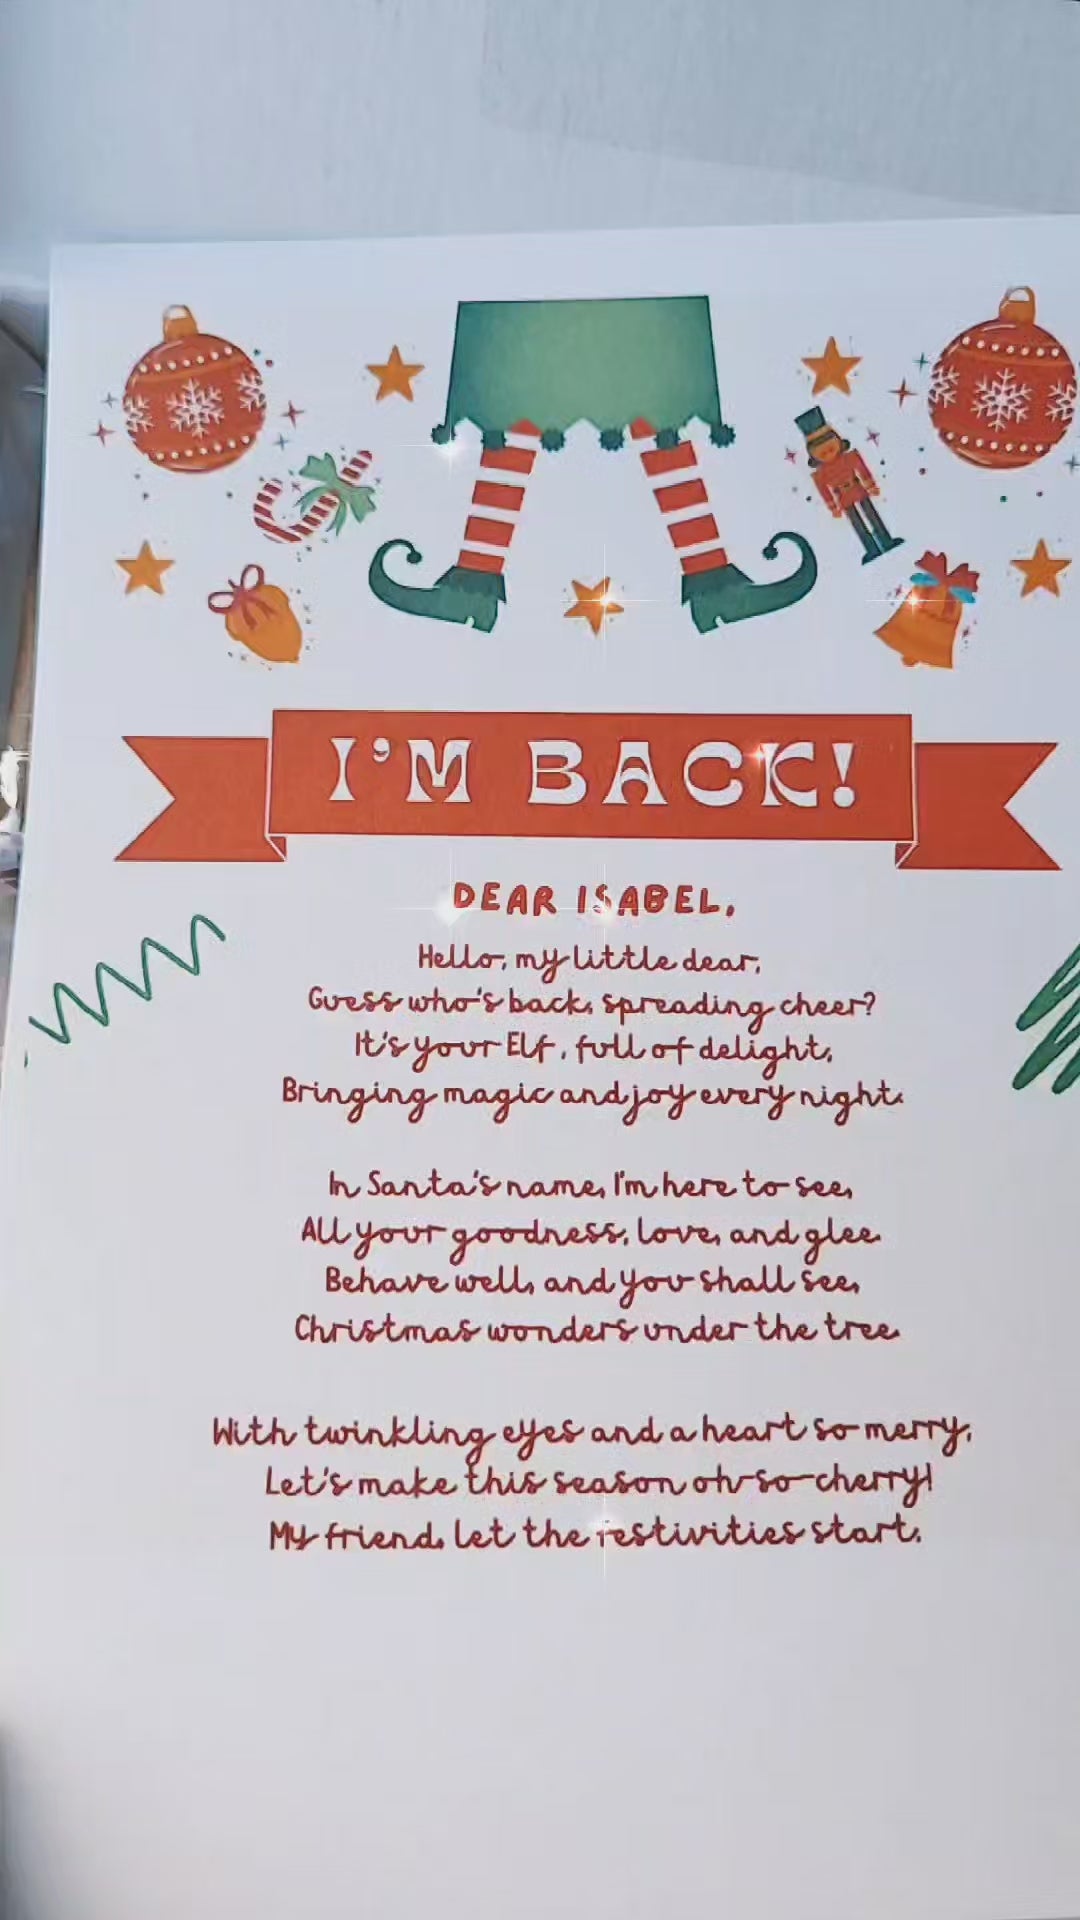 I'M BACK!
DEAR ISABEL,
Hello, my little dear,
Guess who's back, spreading cheer?
It's your Elf, full of delight,
Bringing magic and joy every night.
In Santa's name, I'm here to see,
All your goodness, love, and glee.
Behave well, and you shall see,
Christmas wonders under the tree.
With twinkling eyes and a heart so merry,
Let's make this season oh-so-cherry!
My friend, let the festivities start.